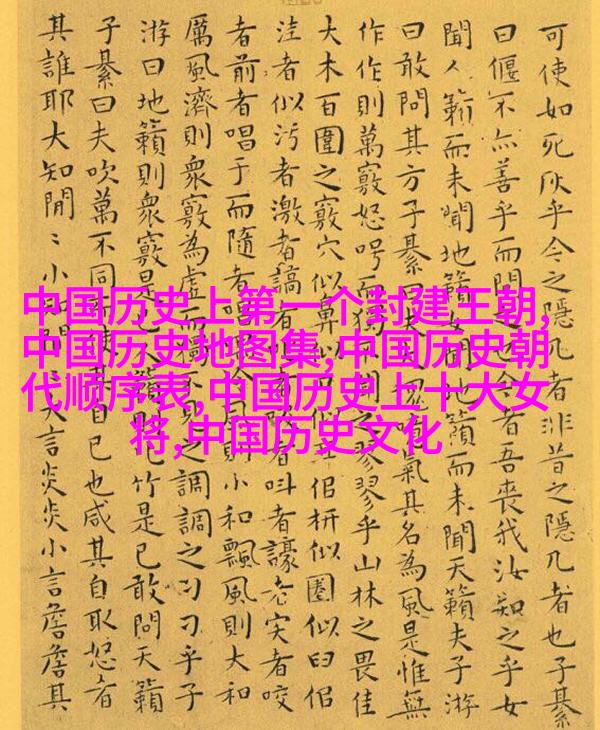 可使如死灰乎今之隱几者非昔之隱几者也子綦
曰偃不亦善乎而問之也今者吾喪我汝知之乎女
聞人籟而未聞地籟女聞地籟而未聞天籟夫子游
曰敢問其方子綦曰夫大噫氣其名為風是惟無
作作則萬竅怒呺而獨不聞之翏翏乎山林之畏佳
大木百圍之竅穴似鼻似口似侣枅似圈似臼侣
洼者似污者激者謞者叱者叫者譹者宎者咬
者前者唱于而隨者唱則小和飄風則大和
厲風濟則眾竅為虛而獨不見之調調之刁刁乎子
游曰地籟則眾竅是已人籟則比竹是已敢問天籟
子綦曰夫吹萬不同而使其自已也咸其自取怒者
其誰耶大知閒〻小知閒〻大言炎炎小言詹詹其
中国历史上第一个封建王朝,
中国历史地图集,中国历史朝
代顺序表,中国历史上十大女
将,中国历史文化